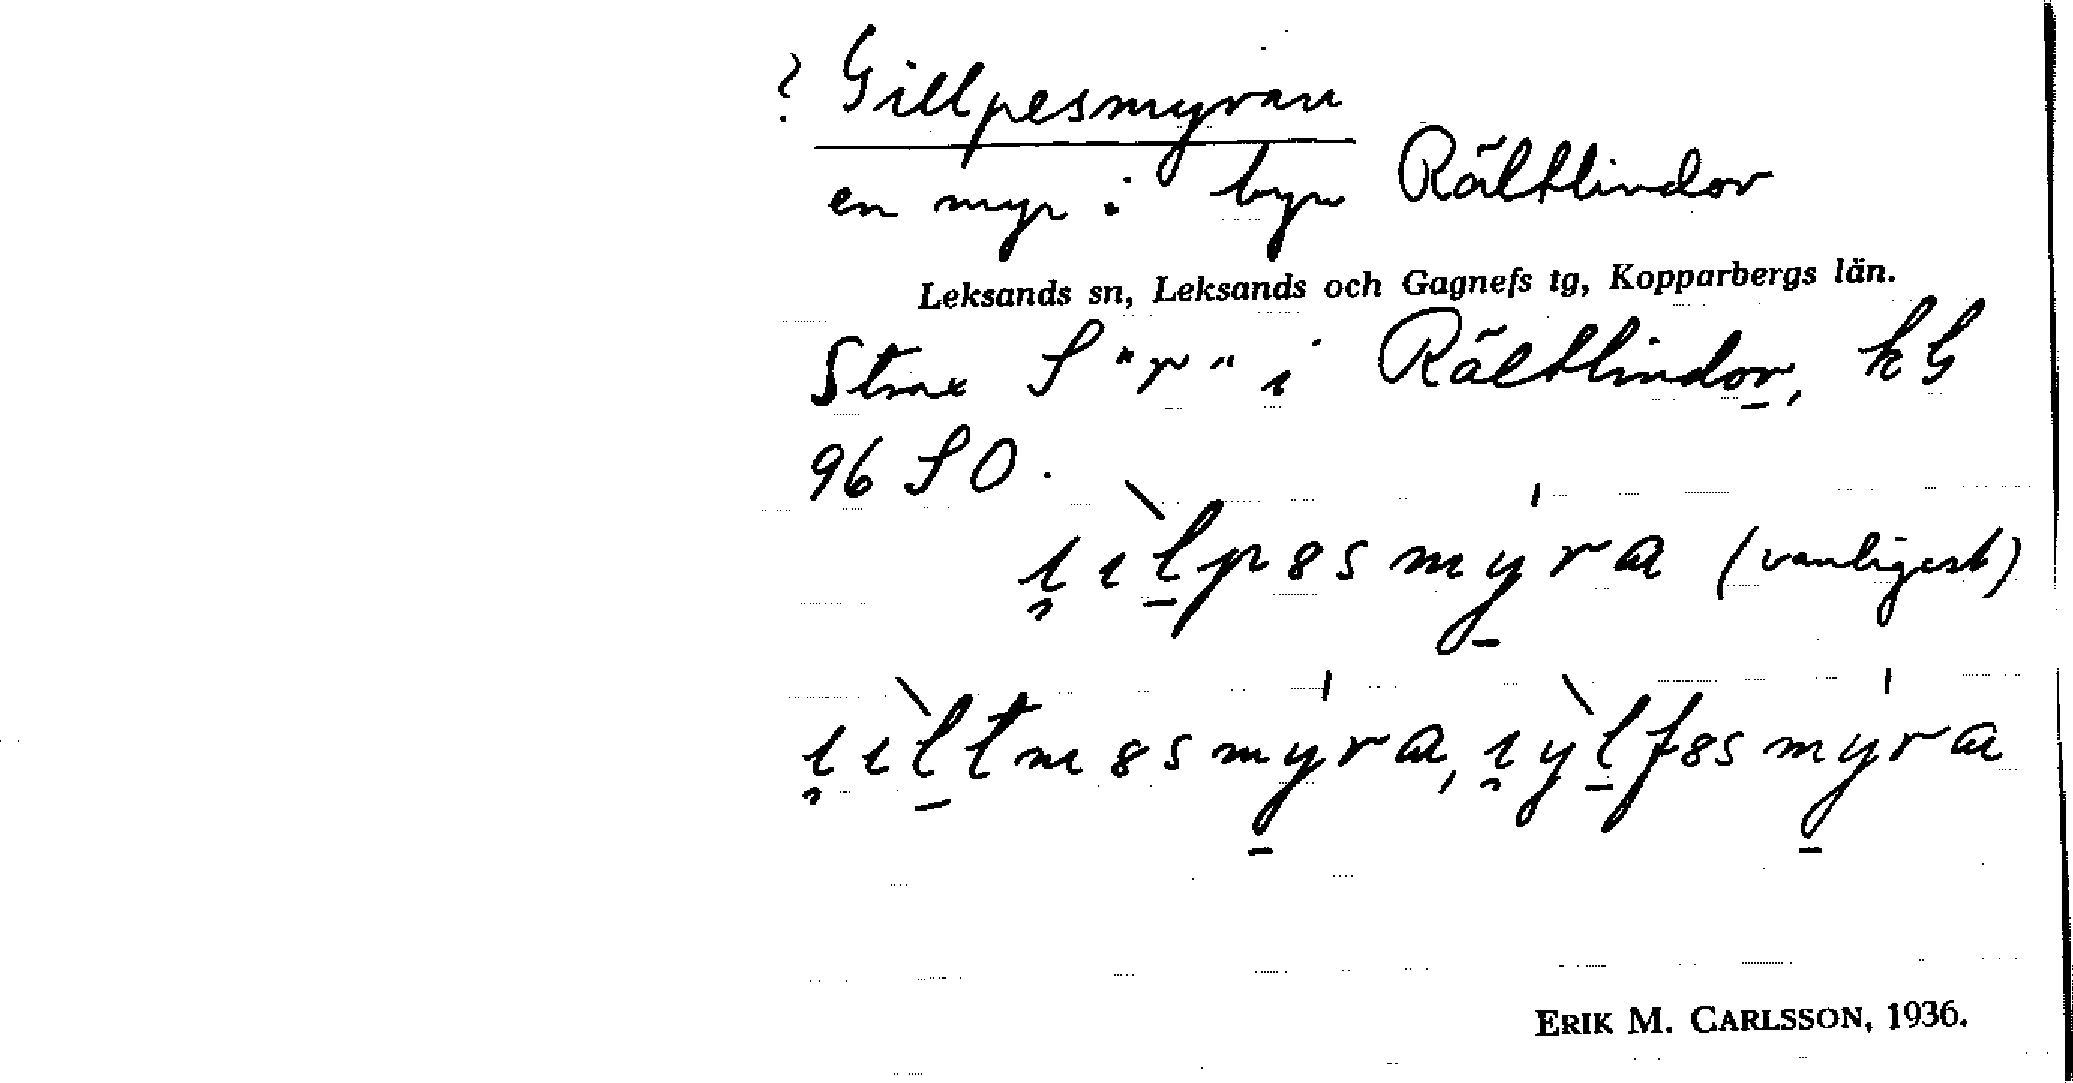 ? Gillpesmyran
en myr i byn Rältlindor
Leksands sn, Leksands och Gagnefs tg, Kopparbergs län.
Strax S "r" i Rältlindor, kG
96 SO.
ı̯ılpəsmyra (vanligast)
ı̯ıltməsmyra, ı̯ylfəsmyra
ERIK M. CARLSSON, 1936.